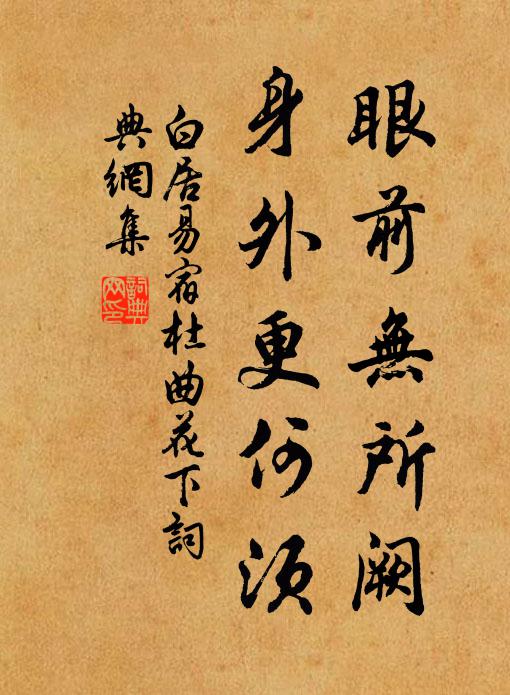 眼前無所闕
身外更何須
白居易宿杜曲花下詞
典網集
詞典網印